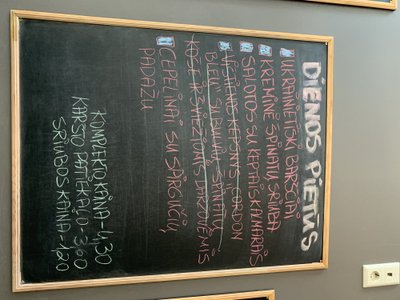 DIENOS PIETŪS
UKRAINIETIŠKI BARŠČIAI
KREMINĖ ŠPINATŲ SRIUBA
SALOTOS SU KEPTAIS KALMARAIS
KEPSNYS „CORDON
BLEU" SU BULVIŲ, ŠPINATŲ
KOŠE IR ŠVIEŽIOMIS DARŽOVĖMIS
CEPELINAI SU SPIRGUČIŲ
PADAŽU
KOMPLEKTO KAINA - 4,30
KARŠTO PATIEKALO - 3,60
SRIUBOS KAINA - 1,20